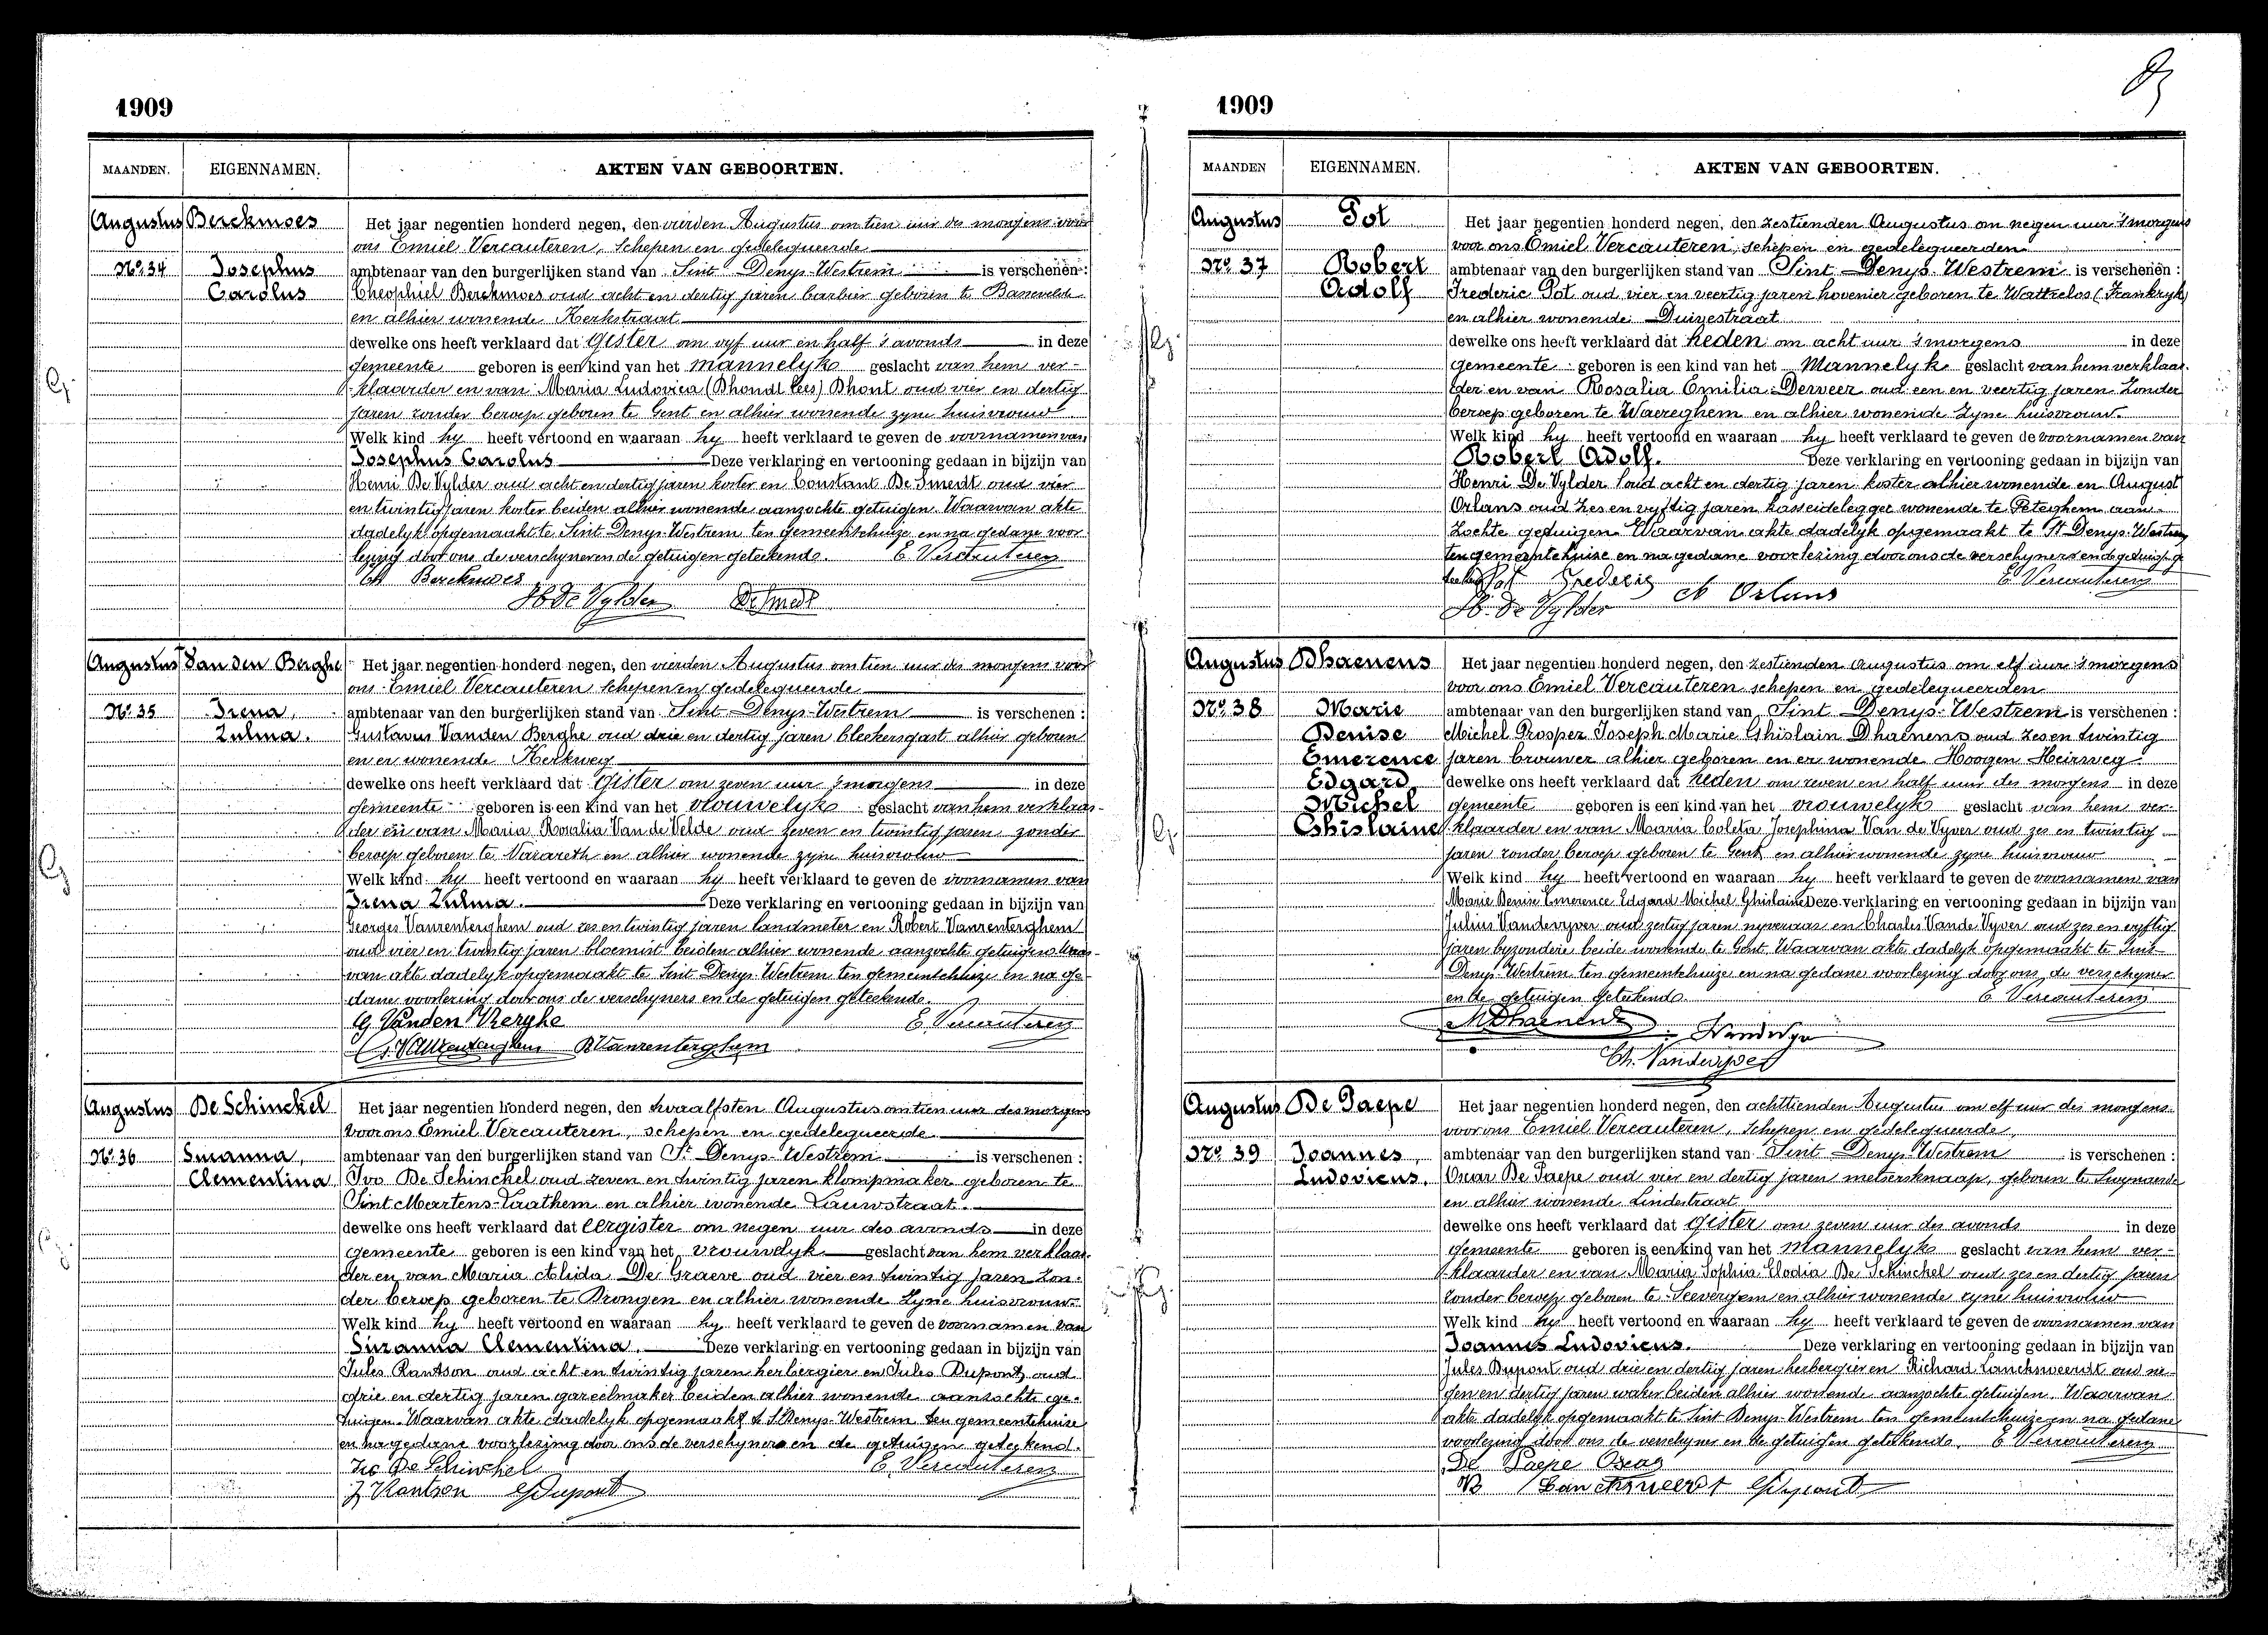 1909
MAANDEN. EIGENNAMEN. AKTEN VAN GEBOORTEN.
Augustus Berckmoes Het jaar negentien honderd negen, den vierden Augustus om tien uur des morgens voor
ons Emiel Vercauteren, Schepen en gedelegueerde
No. 34 Josephus ambtenaar van den burgerlijken stand van Sint Denys-Westrem is verschenen:
Carolus Theophiel Berckmoes oud acht en dertig jaren barbier geboren te
en alhier wonende Kerkstraat
dewelke ons heeft verklaard dat Gister om vyf uur en half 's avonds in deze
gemeente geboren is een kind van het mannelyk geslacht van hem ver-
klaarder en van Maria Ludovica (Dhondt lees) Dhont oud vier en dertig
jaren zonder beroep geboren te Gent en alhier wonende zyne huisvrouw
Welk kind hy heeft vertoond en waaraan hy heeft verklaard te geven de voornamen van
Josephus Carolus Deze verklaring en vertooning gedaan in bijzijn van
Henri De Vylder oud acht en dertig jaren koster en Constant De Smedt oud vier
en twintig jaren koster beiden alhier wonende aanzochte getuigen. Waarvan akte
dadelyk opgemaakt te Sint Denys-Westrem ten gemeentehuize en na gedane voor
lezing door ons de verschyner en de getuigen geteekend. E. Vercauteren
Th Berckmoes
H De Vylder De Smedt
Augustus Van den Berghe Het jaar negentien honderd negen, den vierden Augustus om tien uur des morgens voor
ons Emiel Vercauteren Schepen en gedelegueerde
No. 35 Irena ambtenaar van den burgerlijken stand van Sint-Denys-Westrem is verschenen:
Zulma. Gustavus Vanden Berghe oud drie en dertig jaren bleekersgast alhier geboren
en er wonende Kerkweg
dewelke ons heeft verklaard dat Gister om zeven uur 's morgens in deze
gemeente geboren is een kind van het vrouwelyk geslacht van hem verklaar-
der en van Maria Rosalia Van de Velde oud zeven en twintig jaren zonder
beroep geboren te Nazareth en alhier wonende zyne huisvrouw
Welk kind hy heeft vertoond en waaraan hy heeft verklaard te geven de voornamen van
Irena Zulma. Deze verklaring en vertooning gedaan in bijzijn van
Georges Vanrenterghem oud zes en twintig jaren landmeter en Robert Vanrenterghem
oud vier en twintig jaren bloemist beiden alhier wonende aanzochte getuigen Waar-
van akte dadelyk opgemaakt te Sint Denys-Westrem ten gemeentehuize en na ge-
dane voorlezing door ons de verschyners en de getuigen geteekend.
G Vanden Berghe E. Vercauteren
G. Vanrenterghem R Vanrenterghem
Augustus De Schinckel Het jaar negentien honderd negen, den twaalfsten Augustus om tien uur des morgens
voor ons Emiel Vercauteren, schepen en gedelegueerde
No. 36 Susanna, ambtenaar van den burgerlijken stand van St Denys-Westrem is verschenen:
Clementina Ivo De Schinckel oud zeven en twintig jaren klompmaker geboren te
Sint Martens-Laathem en alhier wonende Lauwstraat.
dewelke ons heeft verklaard dat eergister om negen uur des avonds in deze
gemeente geboren is een kind van het vrouwelyk geslacht van hem verklaar-
der en van Maria Alida De Graeve oud vier en twintig jaren zon-
der beroep geboren te Drongen en alhier wonende zyne huisvrouw.
Welk kind hy heeft vertoond en waaraan hy heeft verklaard te geven de voornamen van
Suzanna Clementina. Deze verklaring en vertooning gedaan in bijzijn van
Jules Rantson oud acht en twintig jaren herbergier en Jules Dupont, oud
drie en dertig jaren gareelmaker beiden alhier wonende aanzochte ge-
tuigen. Waarvan akte dadelyk opgemaakt te S.Denys-Westrem ten gemeentehuize
en na gedane voorlezing door ons de verschyners en de getuigen geteekend.
Ivo De Schinckel E. Vercauteren
J Rantson Dupont
1909
MAANDEN EIGENNAMEN. AKTEN VAN GEBOORTEN.
Augustus Pot Het jaar negentien honderd negen, den zestienden Augustus om negen uur 's morgens
voor ons Emiel Vercauteren, schepen en gedelegueerden
No. 37 Robert ambtenaar van den burgerlijken stand van Sint Denys-Westrem is verschenen:
Adolf Frederic Pot oud vier en veertig jaren hovenier geboren te Wattrelos (Frankryk)
en alhier wonende Duivestraat
dewelke ons heeft verklaard dat heden om acht uur 's morgens in deze
gemeente geboren is een kind van het Mannelyk geslacht van hem verklaar-
der en van Rosalia Emilia Derweer oud een en veertig jaren zonder
beroep geboren te Waereghem en alhier wonende zyne huisvrouw.
Welk kind hy heeft vertoond en waaraan hy heeft verklaard te geven de voornamen van
Robert Adolf. Deze verklaring en vertooning gedaan in bijzijn van
Henri De Vylder oud acht en dertig jaren koster alhier wonende en August
Orlans oud zes en vyftig jaren kasseidelegger wonende te Peteghem aan-
zochte getuigen Waarvan akte dadelyk opgemaakt te St Denys-Westrem
ten gemeentehuize en na gedane voorlezing door ons de verschyners en de getuigen ge
teekend Pot Frederic E. Vercauteren
H. De Vylder A Orlans
Augustus Dhaenens Het jaar negentien honderd negen, den zestienden Augustus om elf uur 's morgens
voor ons Emiel Vercauteren schepen en gedelegueerden
No. 38 Marie ambtenaar van den burgerlijken stand van Sint Denys-Westrem is verschenen:
Denise Michel Prosper Joseph Marie Ghislain Dhaenens oud zes en twintig
Emerence jaren brouwer alhier geboren en er wonende Hoogen Heirweg
Edgard dewelke ons heeft verklaard dat heden om zeven en half uur des morgens in deze
Michel gemeente geboren is een kind van het vrouwelyk geslacht van hem ver-
Ghislaine klaarder en van Maria Coleta Josephina Van de Vyver oud zes en twintig
jaren zonder beroep geboren te Gent en alhier wonende zyne huisvrouw
Welk kind hy heeft vertoond en waaraan hy heeft verklaard te geven de voornamen van
Marie Denise Emerence Edgard Michel Ghislaine Deze verklaring en vertooning gedaan in bijzijn van
Julius Vandevyver oud zestig jaren nyveraar en Charles Vande Vyver oud zes en vyftig
jaren byzondere beide wonende te Gent. Waarvan akte dadelyk opgemaakt te Sint-
Denys-Westrem ten gemeentehuize en na gedane voorlezing door ons de verschyner
en de getuigen geteekend. E. Vercauteren
M Dhaenens
Ch. Vandevyver
Augustus De Paepe Het jaar negentien honderd negen, den achttienden Augustus om elf uur des morgens
voor ons Emiel Vercauteren, Schepen en gedelegueerde,
No. 39 Joannes, ambtenaar van den burgerlijken stand van Sint Denys Westrem is verschenen:
Ludovicus. Oscar De Paepe oud vier en dertig jaren metserknaap, geboren te Swynaerde
en alhier wonende Lindestraat
dewelke ons heeft verklaard dat gister om zeven uur des avonds in deze
gemeente geboren is een kind van het mannelyk geslacht van hem ver-
klaarder en van Maria Sophia Elodia De Schinckel oud zes en dertig jaren
zonder beroep geboren te Seevergem en alhier wonende zyne huisvrouw
Welk kind hy heeft vertoond en waaraan hy heeft verklaard te geven de voornamen van
Joannes Ludovicus. Deze verklaring en vertooning gedaan in bijzijn van
Jules Dupont oud drie en dertig jaren herbergier en Richard Lanckweerdt oud ne-
gen en dertig jaren waker beiden alhier wonende aanzochte getuigen. Waarvan
akte dadelyk opgemaakt te Sint Denys-Westrem ten gemeentehuize en na gedane
voorlezing door ons de verschyner en de getuigen geteekend. E Vercauteren
De Paepe Oscar
R Lanckweerdt Dupont